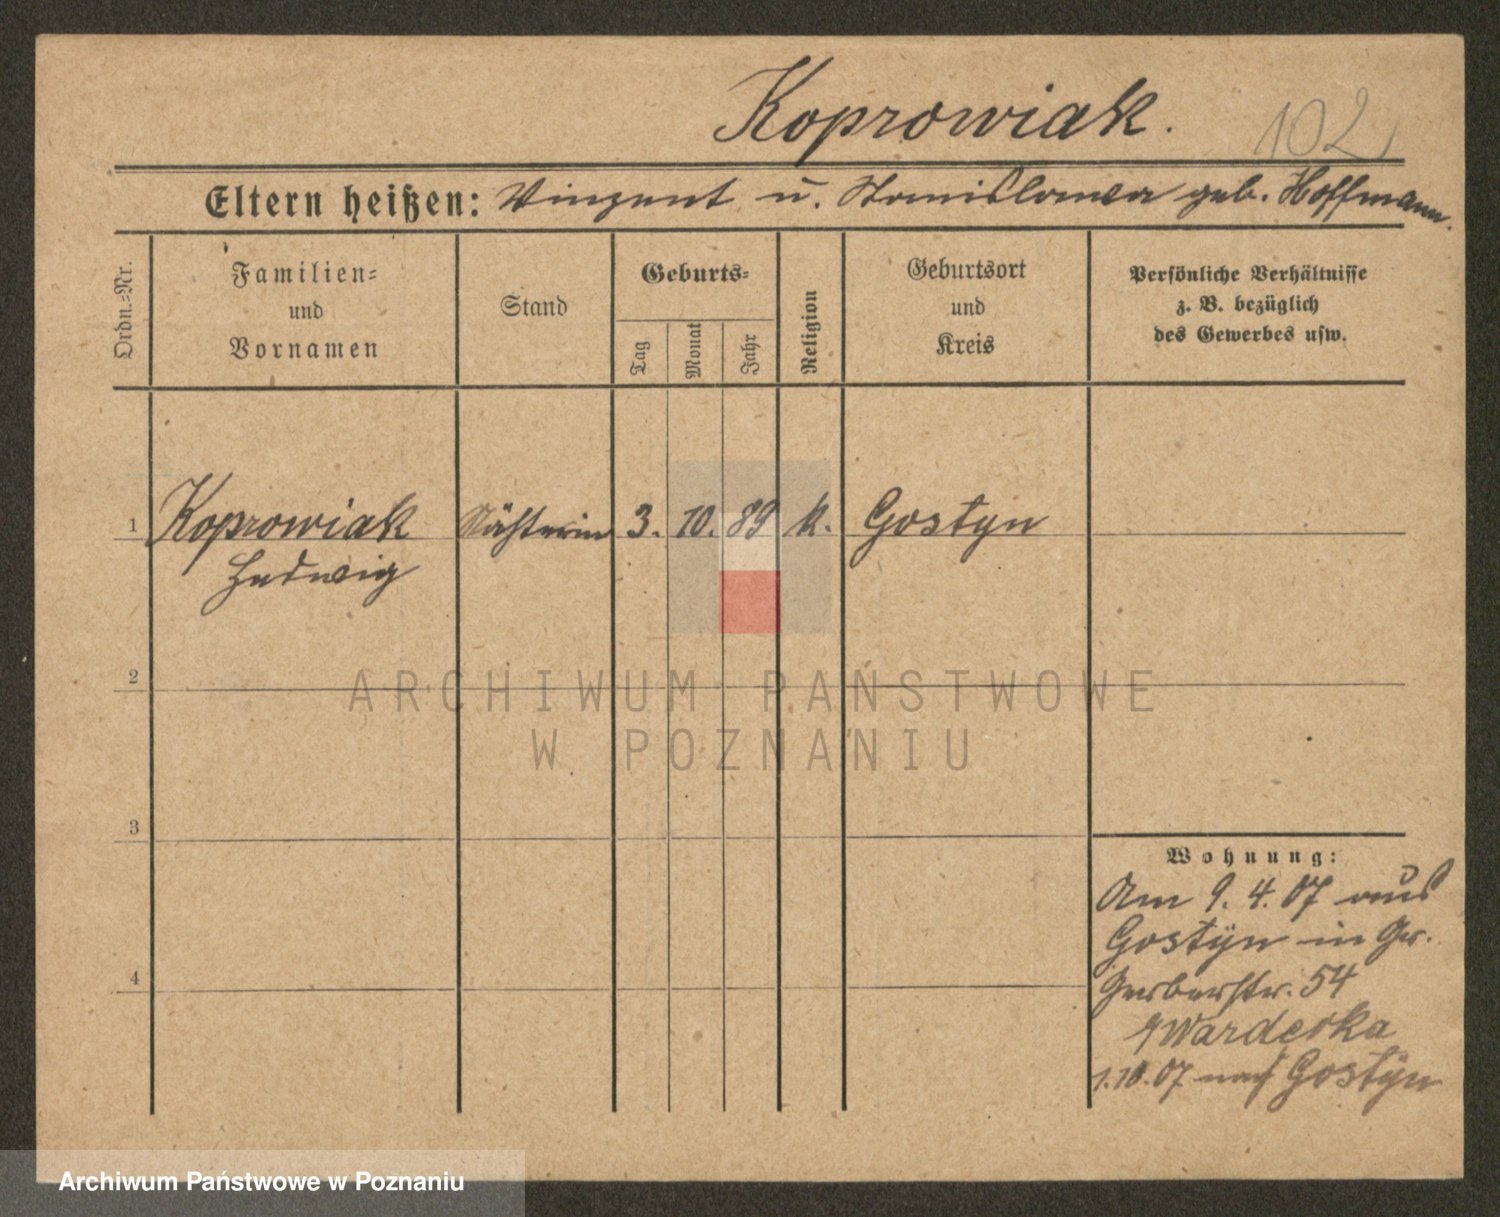 Koprowiak. 102
Eltern heißen: Vinzent u. Stanislawa geb. Hoffmann.
Ordn.=Nr.
Familien=
und
Vornamen
Stand
Geburts=
Tag
Monat
Jahr
Religion
Geburtsort
und
Kreis
Persönliche Verhältnisse
z. B. bezüglich
des Gewerbes usw.
1 Koprowiak Nähterin 3. 10. 89 k. Gostyn
Hedwig
2
3
4
Wohnung:
Am 9. 4. 07 aus
Gostyn in Gr.
Gerberstr. 54
1.10.07 nach Gostyn
ARCHIWUM PAŃSTWOWE
W POZNANIU
Archiwum Państwowe w Poznaniu